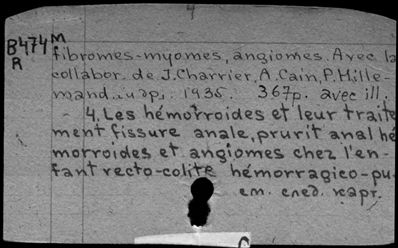 B474 M
R
fibromes-myomes, angiomes. Avec la
collabor. de J. Charrier, A. Cain, P. Hille-
mand.. и др. 1935. 367p. avec ill.
4. Les hémorroides et leur traite
ment fissure anale, prurit anal hé
morroides et angiomes chez l'en-
fant recto-colite hémorragico-pu-
см. след. карт.